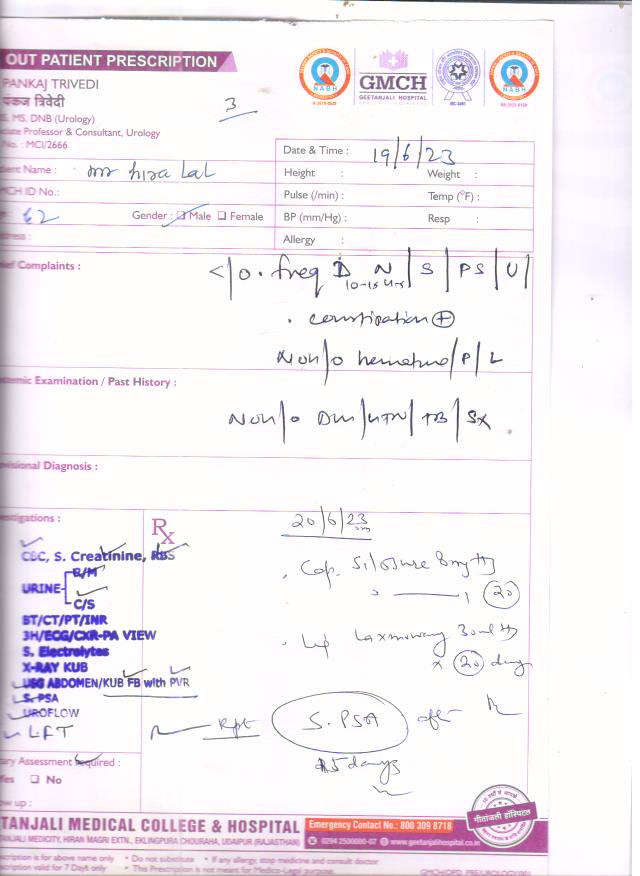 OUT PATIENT PRESCRIPTION
PANKAJ TRIVEDI
पंकज त्रिवेदी
MS, DNB (Urology)
Professor & Consultant, Urology
No. : MCI/2666
3
NABH
GMCH
GEETANJALI HOSPITAL
NABH
Name : Mr Hira Lal
CH ID No.:
62 Gender : Male Female
Date & Time : 19/6/23
Height : Weight :
Pulse (/min) : Temp (°F) :
BP (mm/Hg) : Resp :
Allergy :
Complaints :
c/o . freq D N | S | PS | U |
. constipation +
No h/o hematuria / P / L
Examination / Past History :
No h/o DM / HTN / TB / SX
Diagnosis :
Rx
20/6/23
CBC, S. Creatinine, RBS
URINE
R/M
C/S
BT/CT/PT/INR
3H/ECG/CXR-PA VIEW
S. Electrolytes
X-RAY KUB
USG ABDOMEN/KUB FB with PVR
S. PSA
UROFLOW
LFT
. Cap. Silosure 8mg
20
Laxmoway 30ml
x 20 days
Rpt S. PSA after
15 days
Assessment Required :
No
up :
TANJALI MEDICAL COLLEGE & HOSPITAL
Emergency Contact No.: 800 309 8718
ANJALI MEDICITY, HIRAN MAGRI EXTN., EKLINGPURA CHOURAHA, UDAIPUR (RAJASTHAN)
0294 2500000-07 www.geetanjalihospital.co.in
is for above name only • Do not substitute • If any allergy, stop medicine and consult doctor
valid for 7 Days only • This Prescription is not meant for Medico-Legal purpose.
गीतांजली हॉस्पिटल